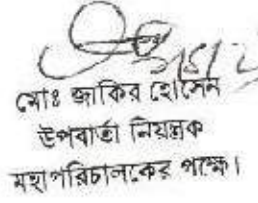 মোঃ জাকির হোসেন
উপবার্তা নিয়ন্ত্রক
মহাপরিচালকের পক্ষে।